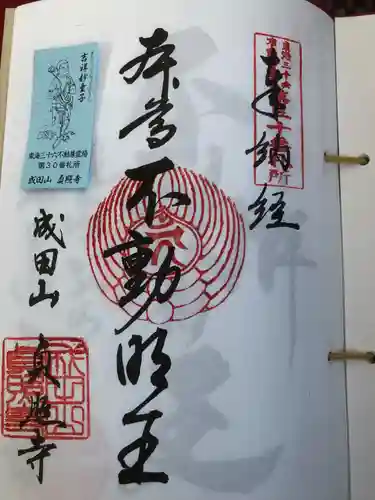 奉納経
本尊不動明王
吉祥妙童子
東海三十六不動尊霊場
第30番札所
成田山 貞照寺
成田山 貞照寺